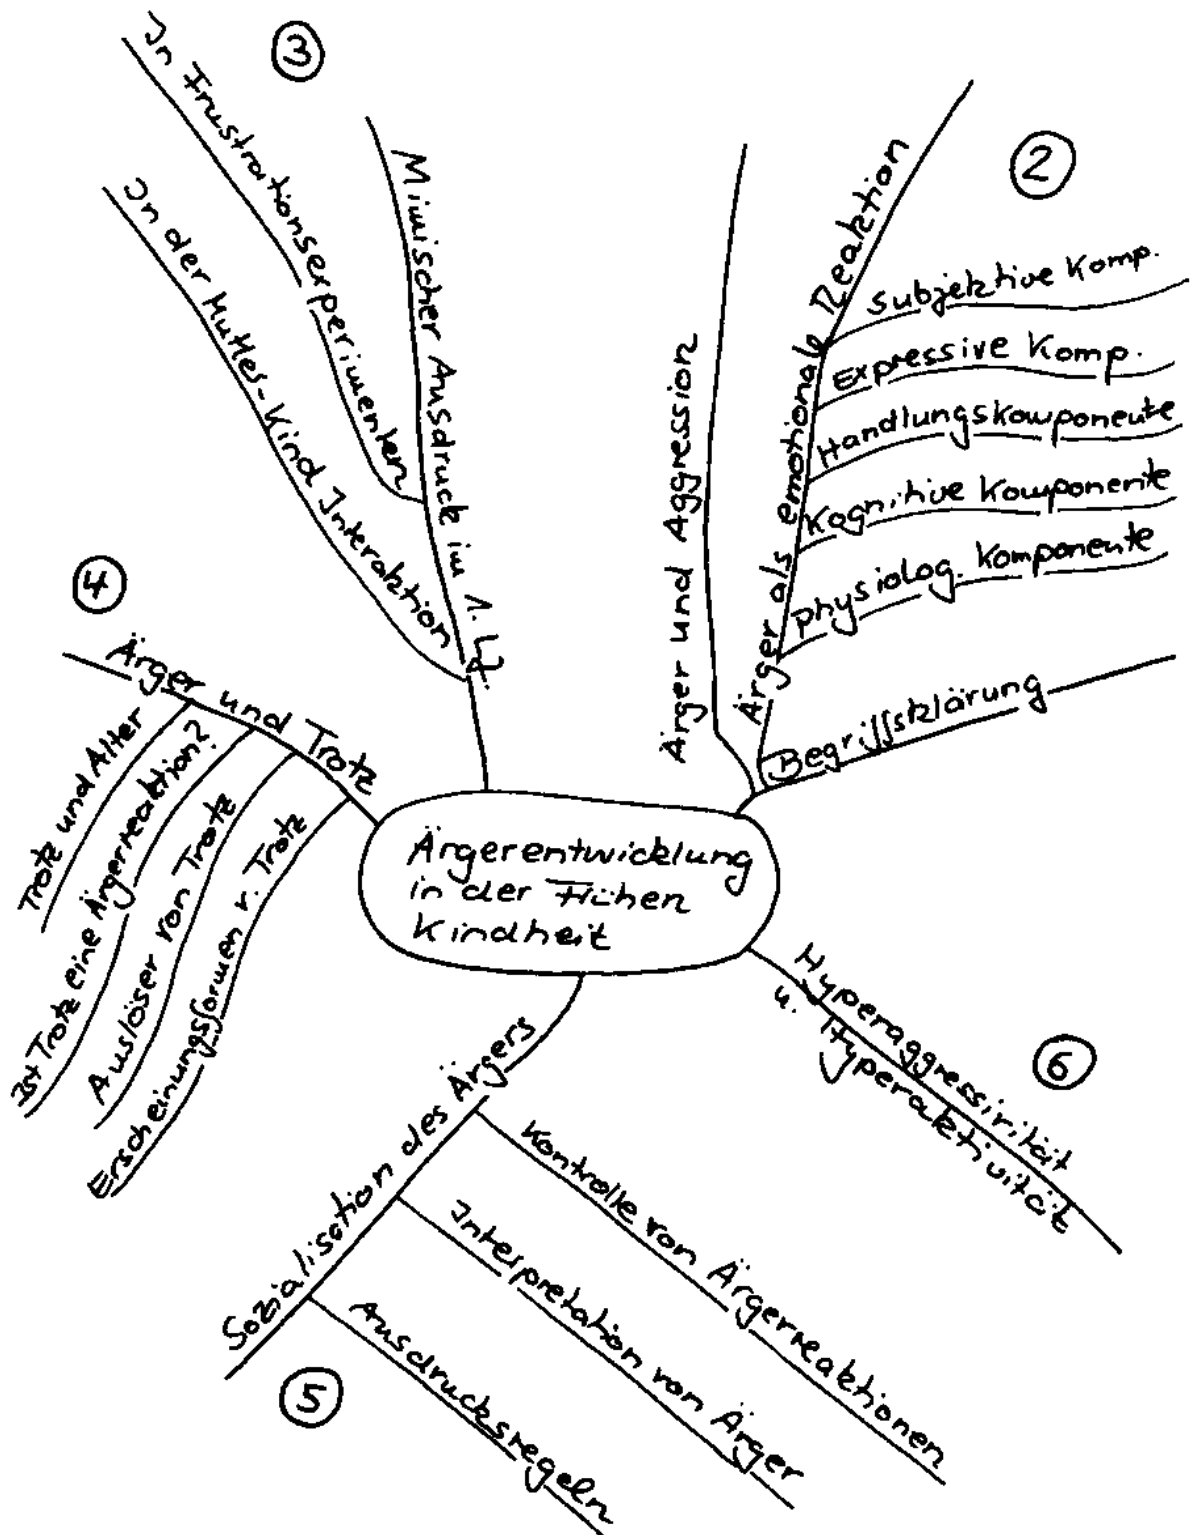 Ärgerentwicklung
in der Frühen
Kindheit
2
Begriffsklärung
Ärger als emotionale Reaktion
Subjektive Komp.
Expressive Komp.
Handlungskomponente
Kognitive Komponente
physiolog. Komponente
Ärger und Aggression
3
Mimischer Ausdruck im 1. Lj.
In Frustrationsexperimenten
In der Mutter-Kind Interaktion
4
Ärger und Trotz
Trotz und Alter
Ist Trotz eine Ärgerreaktion?
Auslöser von Trotz
Erscheinungsformen v. Trotz
5
Sozialisation des Ärgers
Kontrolle von Ärgerreaktionen
Interpretation von Ärger
Ausdrucksregeln
6
Hyperaggressivität
u. Hyperaktivität